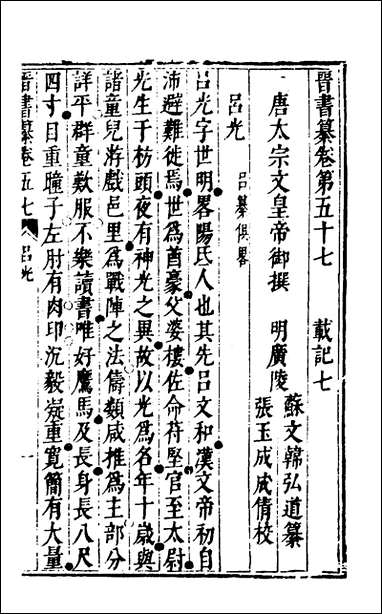 晉書纂卷第五十七　載記七
唐太宗文皇帝御撰　明廣陵　蘇文韓弘道纂
張玉成成倩校
呂光　呂纂俱畧
呂光字世明畧陽氐人也其先呂文和漢文帝初自
沛避難徙焉世爲酋豪父婆樓佐命苻堅官至太尉
光生于枋頭夜有神光之異故以光爲名年十歲與
諸童兒游戲邑里爲戰陣之法儔類咸推爲主部分
詳平群童歎服不樂讀書唯好鷹馬及長身長八尺
四寸目重瞳子左肘有肉印沉毅凝重寬簡有大量
晉書纂卷五七　呂光　一